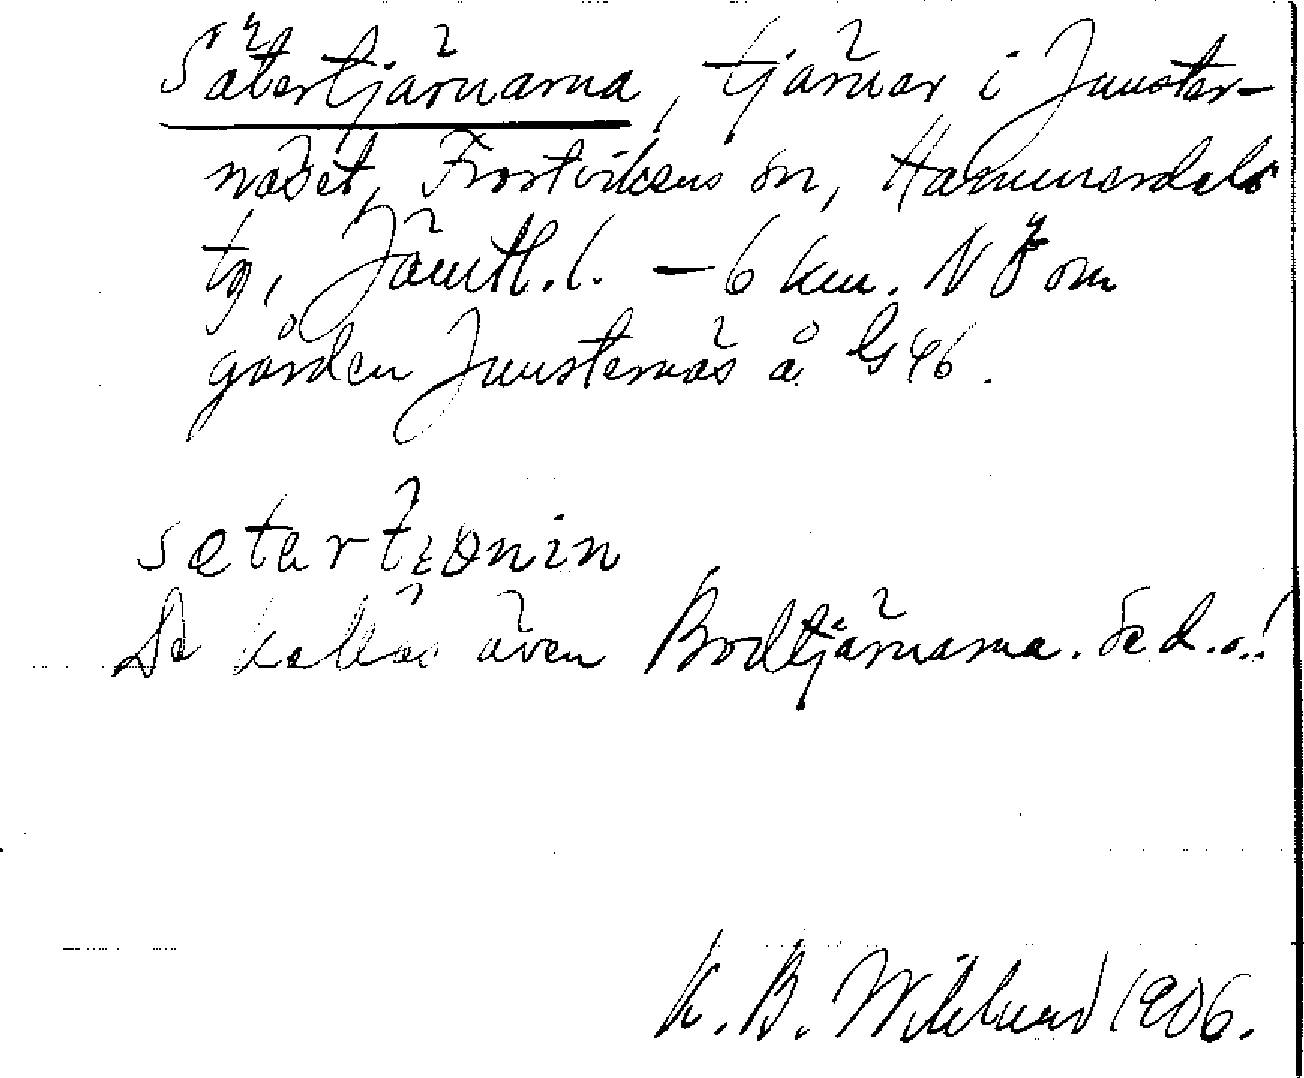 Sätertjärnarna, tjärnar i Junster-
näset, Frostvikens sn, Hammerdals
tg, Jämtl. l. – 6 km. NÖ om
gården Junsternäs å G 46.
De kallas även Bodtjärnarna. Se d. o.!
K. B. Wiklund 1906.